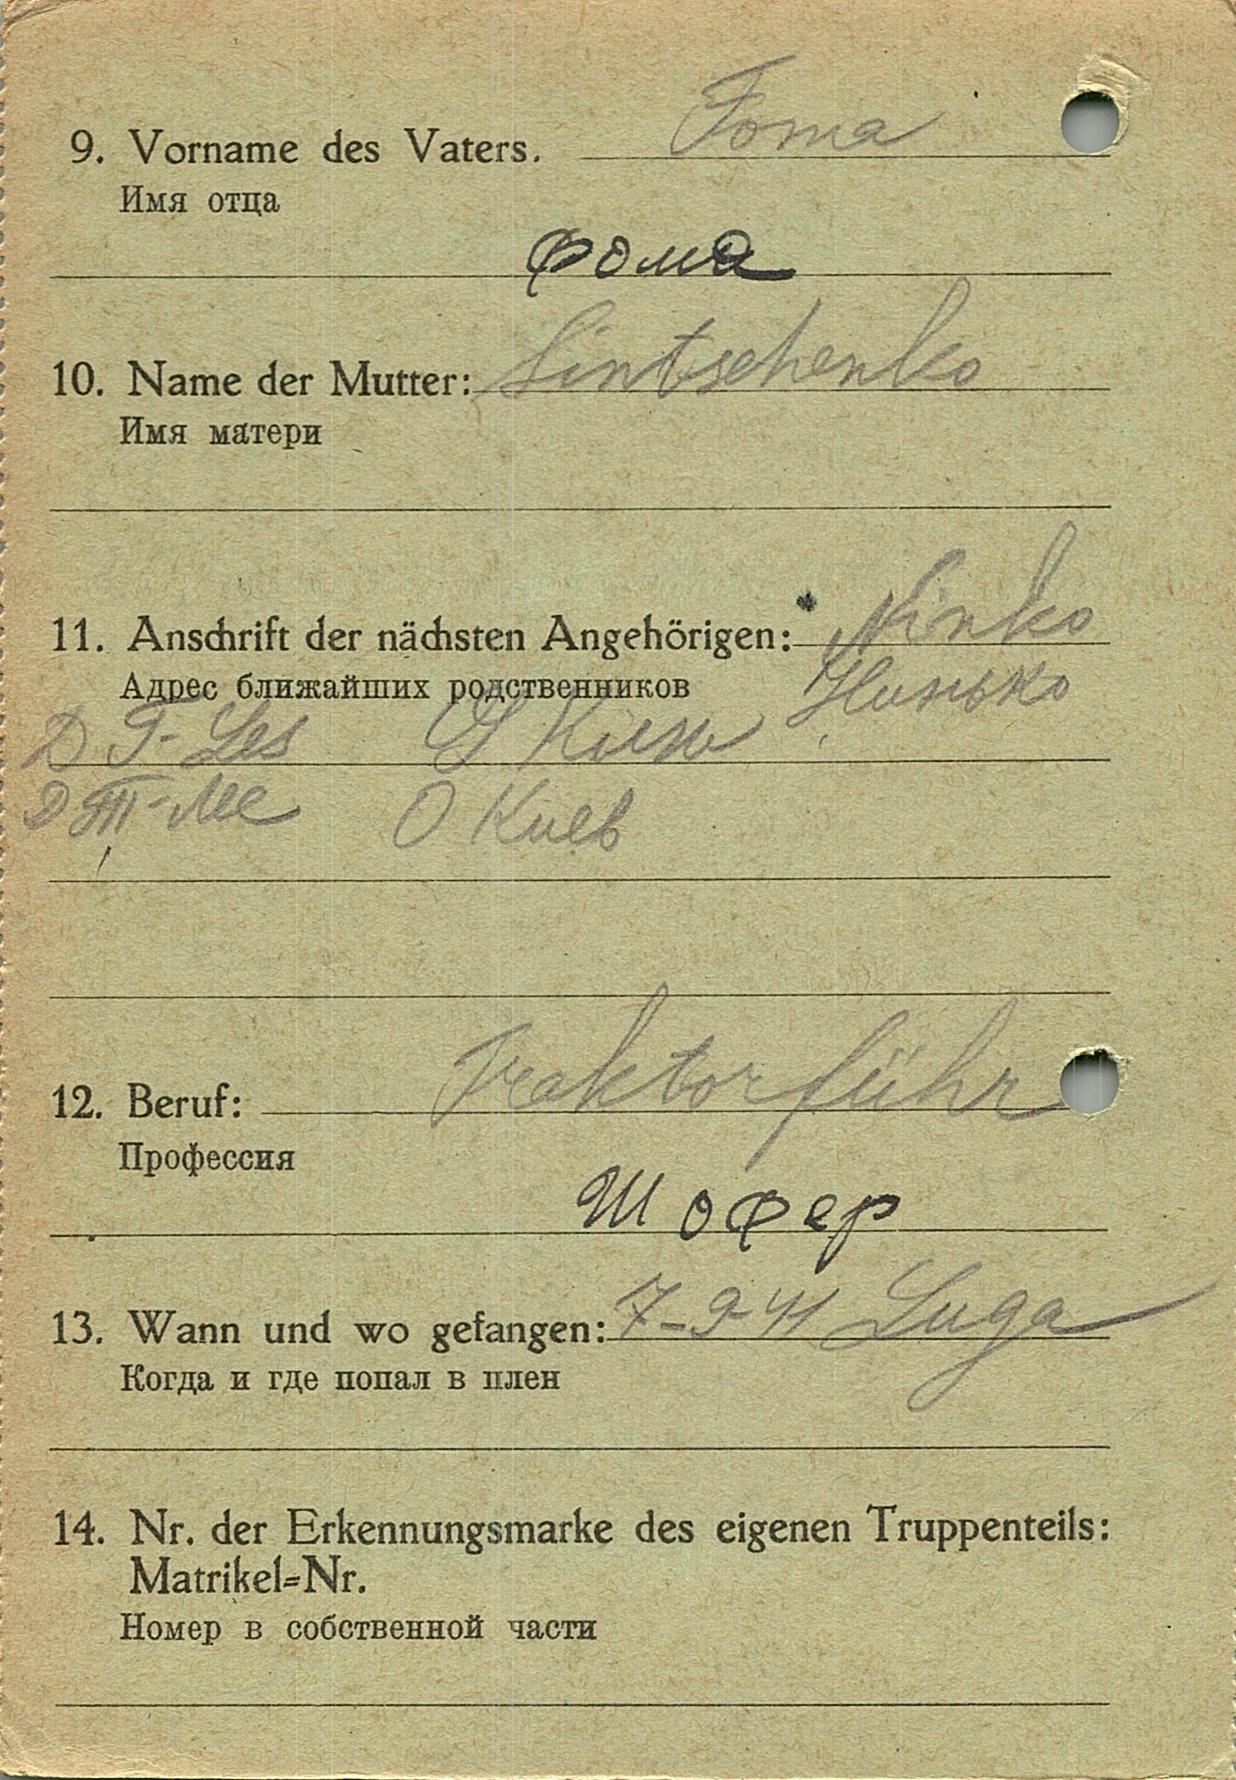 9. Vorname des Vaters. Foma
Имя отца
Фома
10. Name der Mutter: Sintschenko
Имя матери
11. Anschrift der nächsten Angehörigen: Ninko
Адрес ближайших родственников Нинько
Д Т- Les O Kiew
Д Т- Лес О Киев
12. Beruf: Traktorführ
Профессия
Шофер
13. Wann und wo gefangen: 7-9-41 Luga
Когда и где попал в плен
14. Nr. der Erkennungsmarke des eigenen Truppenteils:
Matrikel=Nr.
Номер в собственной части